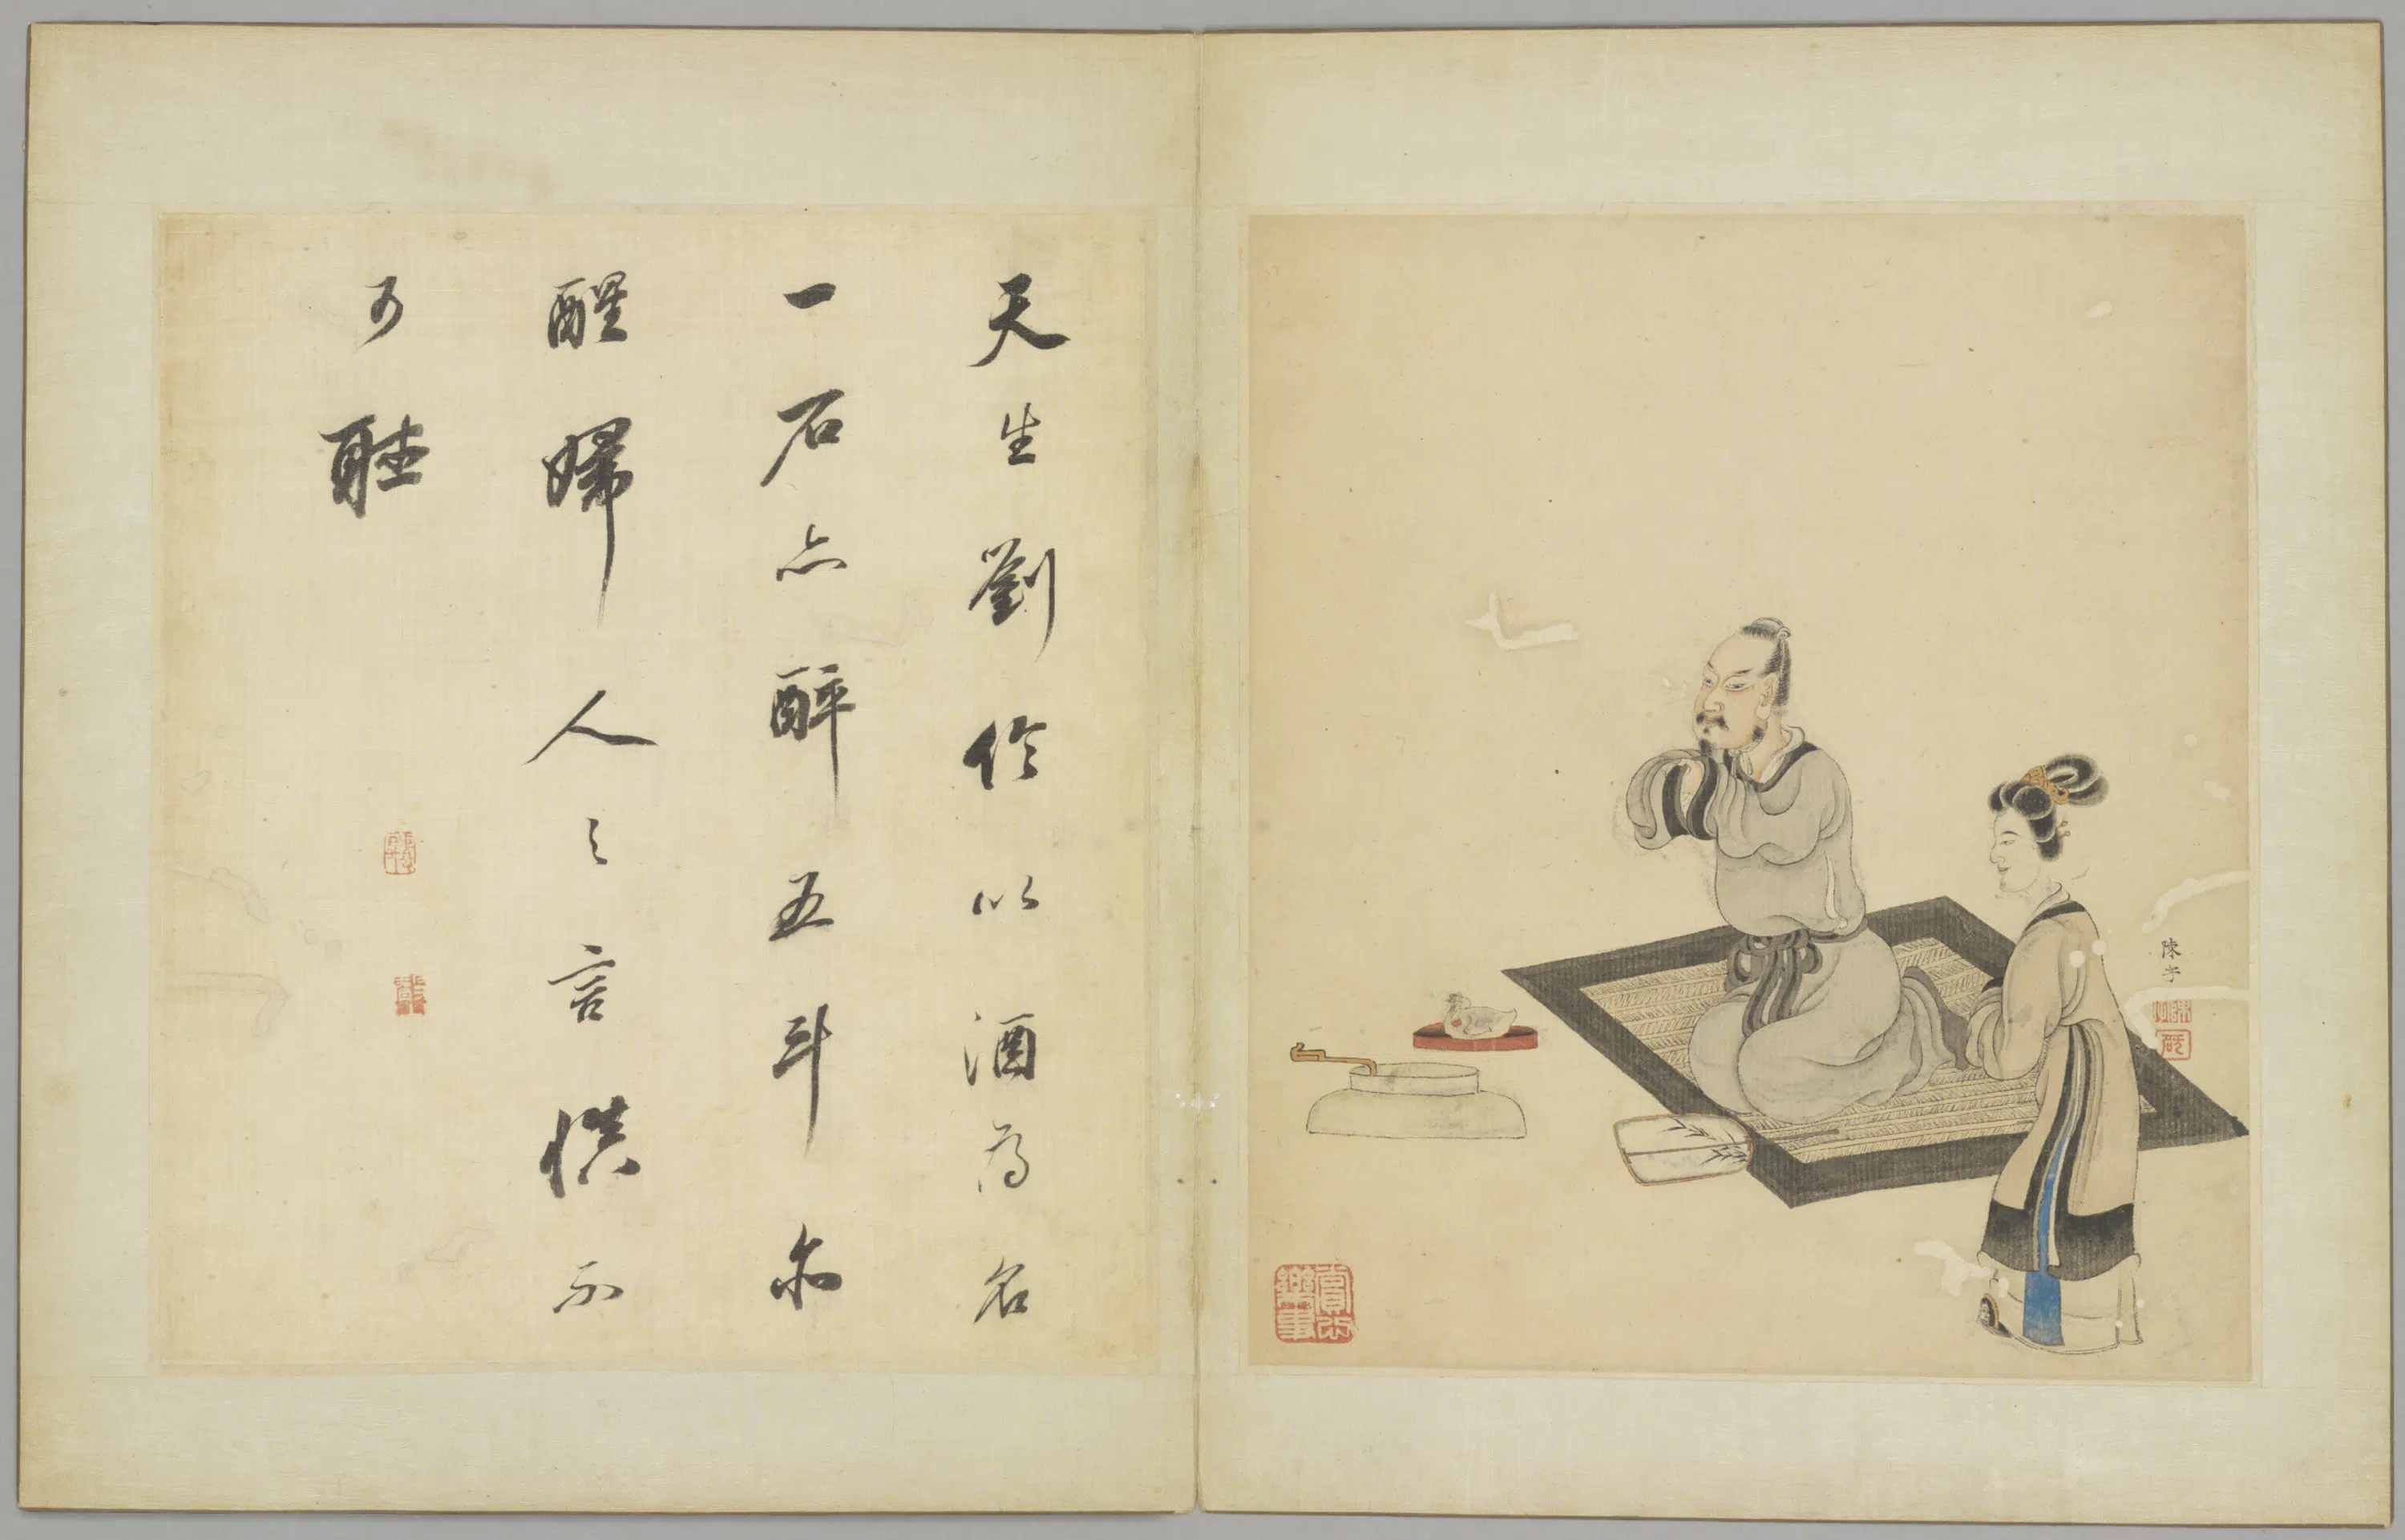 陳字
賞心樂事
天生劉伶以酒為名
一石亦醉五斗亦
醒婦人之言慎不
可聽